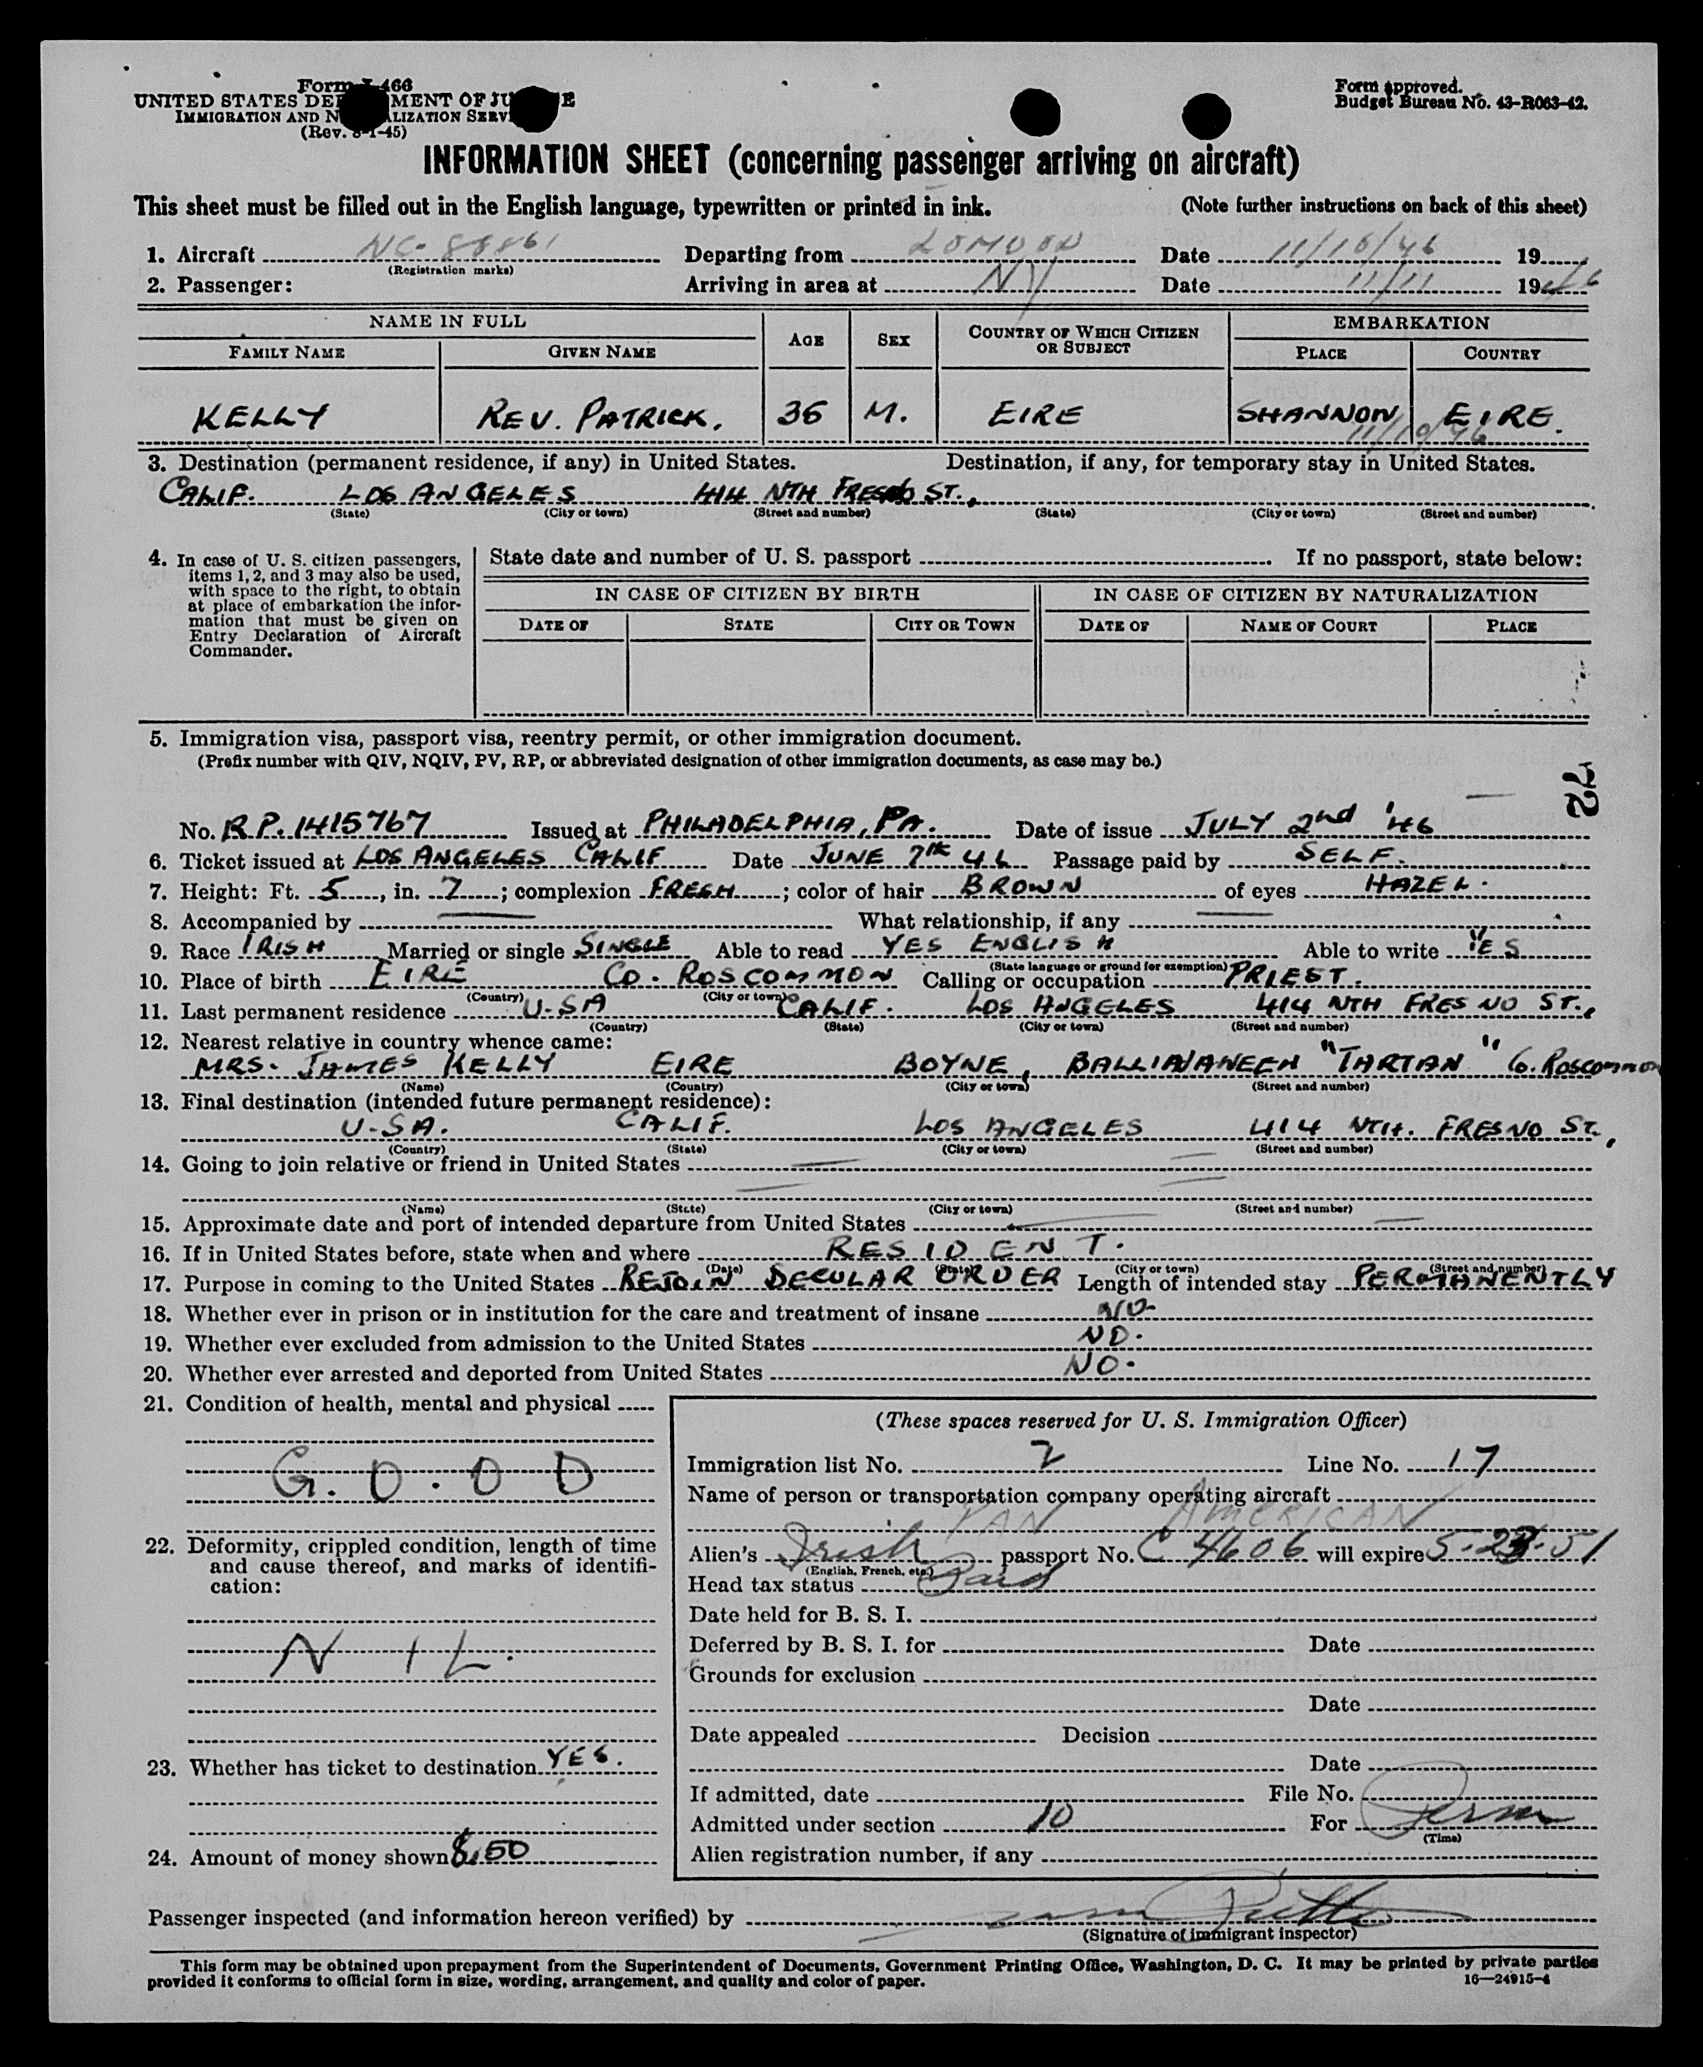 Form I-466
UNITED STATES DEPARTMENT OF JUSTICE
IMMIGRATION AND NATURALIZATION SERVICE
(Rev. 8-1-45)
Form approved.
Budget Bureau No. 43-R063-42.
INFORMATION SHEET (concerning passenger arriving on aircraft)
This sheet must be filled out in the English language, typewritten or printed in ink. (Note further instructions on back of this sheet)
1. Aircraft NC-88861 Departing from LONDON Date 11/10/46 19
(Registration marks)
2. Passenger: Arriving in area at NY Date 11/11 1946
NAME IN FULL AGE SEX COUNTRY OF WHICH CITIZEN OR SUBJECT EMBARKATION
FAMILY NAME GIVEN NAME PLACE COUNTRY
KELLY REV. PATRICK. 36 M. EIRE SHANNON EIRE.
11/10/46
3. Destination (permanent residence, if any) in United States. Destination, if any, for temporary stay in United States.
CALIF. LOS ANGELES 414 NTH FRESNO ST.,
(State) (City or town) (Street and number) (State) (City or town) (Street and number)
4. In case of U. S. citizen passengers, items 1, 2, and 3 may also be used, with space to the right, to obtain at place of embarkation the information that must be given on Entry Declaration of Aircraft Commander.
State date and number of U. S. passport If no passport, state below:
IN CASE OF CITIZEN BY BIRTH IN CASE OF CITIZEN BY NATURALIZATION
DATE OF STATE CITY OR TOWN DATE OF NAME OF COURT PLACE
5. Immigration visa, passport visa, reentry permit, or other immigration document.
(Prefix number with QIV, NQIV, PV, RP, or abbreviated designation of other immigration documents, as case may be.)
72
No. R.P. 1415767 Issued at PHILADELPHIA, PA. Date of issue JULY 2nd '46
6. Ticket issued at LOS ANGELES CALIF Date JUNE 7th 46 Passage paid by SELF.
7. Height: Ft. 5, in. 7; complexion FRESH; color of hair BROWN of eyes HAZEL.
8. Accompanied by — What relationship, if any —
9. Race IRISH Married or single SINGLE Able to read YES ENGLISH Able to write YES
(State language or ground for exemption)
10. Place of birth EIRE CO. ROSCOMMON Calling or occupation PRIEST.
(Country) (City or town)
11. Last permanent residence U.SA CALIF. LOS ANGELES 414 NTH FRESNO ST.,
(Country) (State) (City or town) (Street and number)
12. Nearest relative in country whence came:
MRS. JAMES KELLY EIRE BOYNE, BALLINAMEEN "TARTAN" Co. ROSCOMMON
(Name) (Country) (City or town) (Street and number)
13. Final destination (intended future permanent residence):
U.SA. CALIF. LOS ANGELES 414 NTH. FRESNO ST.,
(Country) (State) (City or town) (Street and number)
14. Going to join relative or friend in United States — —
— —
(Name) (State) (City or town) (Street and number)
15. Approximate date and port of intended departure from United States — —
16. If in United States before, state when and where RESIDENT.
(Date) (State) (City or town) (Street and number)
17. Purpose in coming to the United States REJOIN SECULAR ORDER Length of intended stay PERMANENTLY
18. Whether ever in prison or in institution for the care and treatment of insane NO
19. Whether ever excluded from admission to the United States NO.
20. Whether ever arrested and deported from United States NO.
21. Condition of health, mental and physical
G.O.OD
22. Deformity, crippled condition, length of time and cause thereof, and marks of identification:
NIL.
23. Whether has ticket to destination YES.
24. Amount of money shown $.50
(These spaces reserved for U. S. Immigration Officer)
Immigration list No. 2 Line No. 17
Name of person or transportation company operating aircraft
PAN AMERICAN
Alien's Irish passport No. C 4606 will expire 5-23-51
(English, French, etc.)
Head tax status Paid
Date held for B. S. I.
Deferred by B. S. I. for Date
Grounds for exclusion
Date
Date appealed Decision
Date
If admitted, date File No.
Admitted under section 10 For Perm
(Time)
Alien registration number, if any
Passenger inspected (and information hereon verified) by
(Signature of immigrant inspector)
This form may be obtained upon prepayment from the Superintendent of Documents, Government Printing Office, Washington, D. C. It may be printed by private parties
provided it conforms to official form in size, wording, arrangement, and quality and color of paper. 16—24915-4